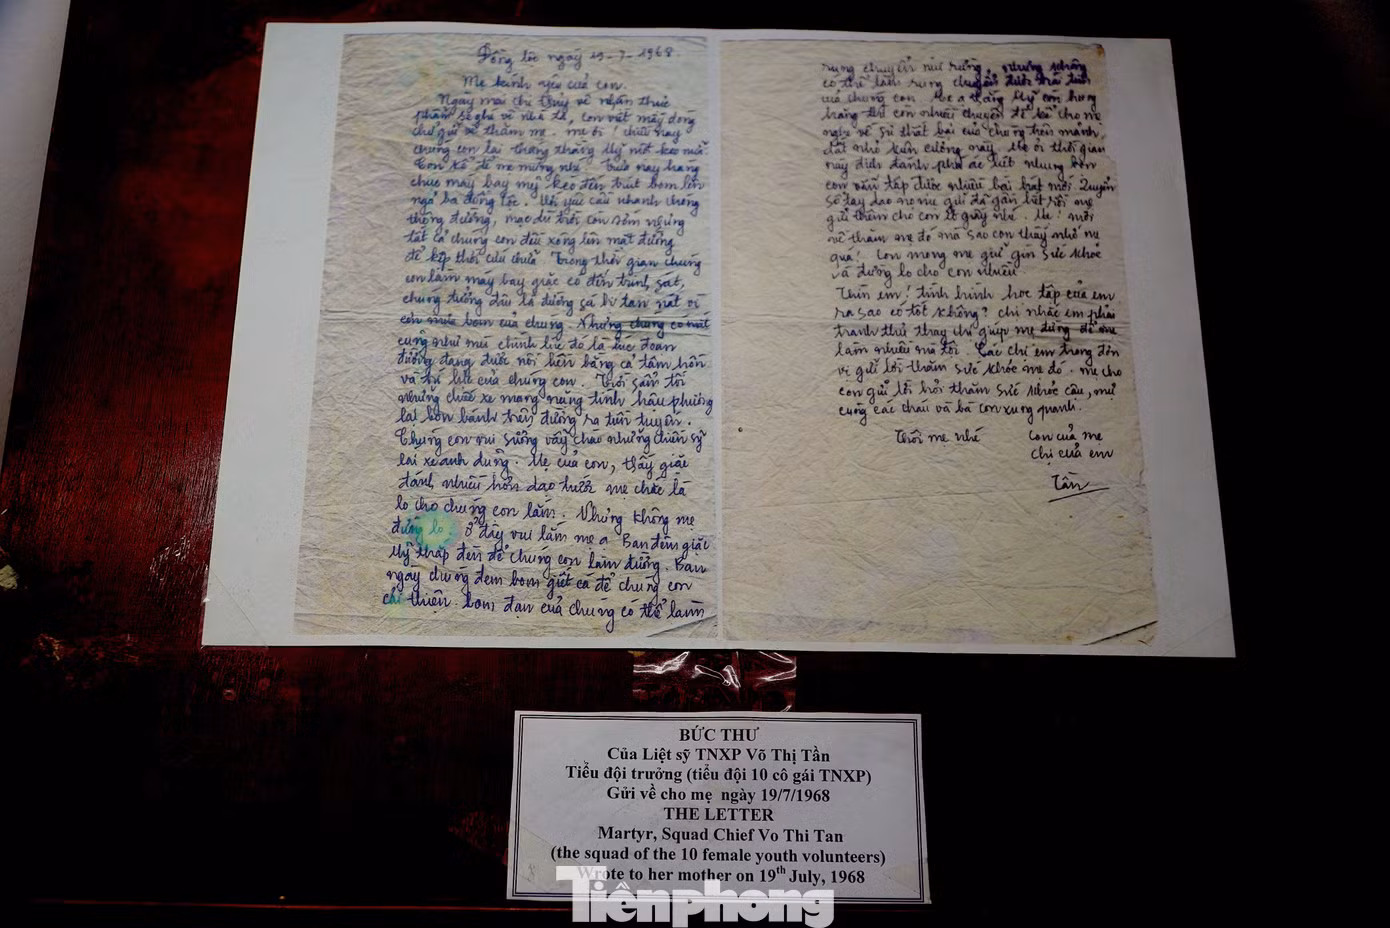 Đồng lộc ngày 19-7-1968.
Mẹ kính yêu của con.
Ngày mai chị Thúy về nhận thực
phẩm sẽ ghé về nhà ta, con viết mấy dòng
chữ gửi về thăm mẹ. Mẹ ơi! chiều nay
chúng con lại thắng thằng Mỹ một keo nữa.
Con kể để mẹ mừng nhé. Trưa nay hàng
chục máy bay mỹ kéo đến trút bom lên
ngã ba đồng lộc. Với yêu cầu nhanh chóng
thông đường, mặc dù trời còn sớm nhưng
tất cả chúng con đều xông lên mặt đường
để kịp thời cứu chữa. Trong thời gian chúng
con làm máy bay giặc có đến trinh sát,
chúng tưởng đâu là đường sá bị tan nát vì
cơn mưa bom của chúng. Nhưng chúng có
cũng như mù chính lúc đó là lúc đoạn
đường đang được nối liền bằng cả tâm hồn
và trí lực của chúng con. Trời sẩm tối
những chiếc xe mang nặng tình hậu phương
lại bon bánh trên đường ra tiền tuyến.
Chúng con vui sướng vẫy chào những chiến sỹ
lái xe anh dũng. Mẹ của con, thấy giặc
đánh nhiều hơn dạo trước mẹ chắc là
lo cho chúng con lắm. Nhưng không mẹ
đừng lo ở đây vui lắm mẹ ạ. Ban đêm giặc
Mỹ thắp đèn để chúng con làm đường. Ban
ngày chúng đem bom giết cá để chúng con
cải thiện. bom đạn của chúng có thể làm
rung chuyển núi rừng, nhưng không
có thể làm rung chuyển được trái tim
của chúng con. Mẹ ạ thằng Mỹ còn hung
hăng thì con nhiều chuyện để kể cho mẹ
nghe về sự thất bại của chúng trên mảnh
đất nhỏ kiên cường này. Mẹ ơi thời gian
này địch đánh phá ác liệt nhưng bọn
con vẫn tập được nhiều bài hát mới. Quyển
sổ tay dạo nọ mẹ gửi đã gần hết rồi mẹ
gửi thêm cho con ít giấy nhé. Mẹ! mới
về thăm mẹ đó mà sao con thấy nhớ mẹ
quá! Con mong mẹ giữ gìn sức khỏe
và đừng lo cho con nhiều.
Thìn em! tình hình học tập của em
ra sao có tốt không? chị nhắc em phải
tranh thủ thay chị giúp mẹ đừng để mẹ
làm nhiều mà tội. Các chị em trong đơn
vị gửi lời thăm sức khỏe mẹ đó. mẹ cho
con gửi lời hỏi thăm sức khỏe cậu, mự
cùng các cháu và bà con xung quanh.
Thôi mẹ nhé
Con của mẹ
chị của em
Tần
BỨC THƯ
Của Liệt sỹ TNXP Võ Thị Tần
Tiểu đội trưởng (tiểu đội 10 cô gái TNXP)
Gửi về cho mẹ ngày 19/7/1968
THE LETTER
Martyr, Squad Chief Vo Thi Tan
(the squad of the 10 female youth volunteers)
Wrote to her mother on 19th July, 1968
Tiềnphong